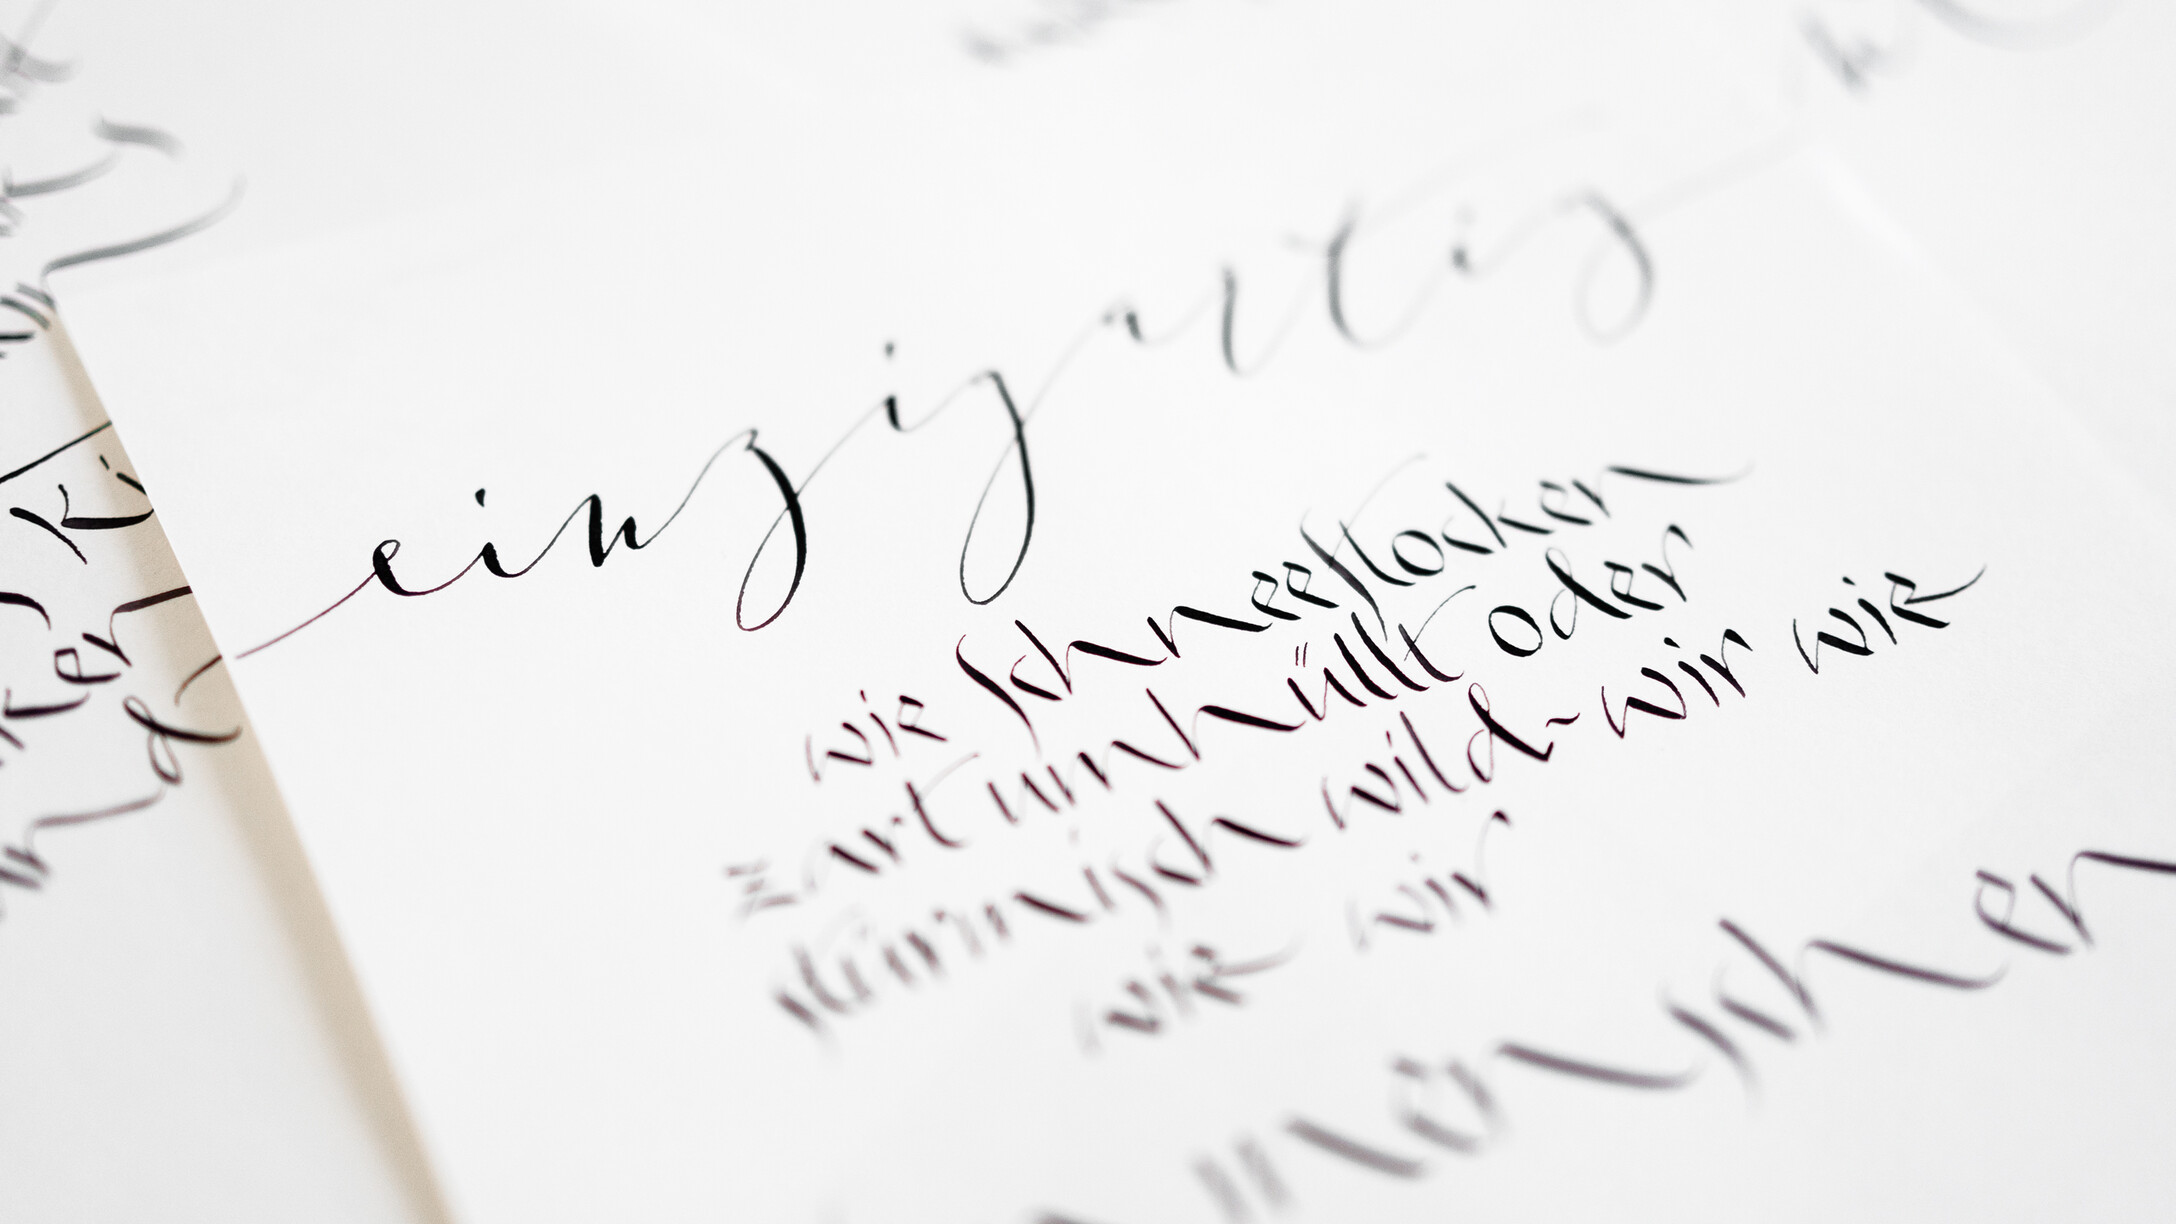 einzigartig
wie schneeflocken
zart umhüllt oder
stürmisch wild - wir wie
wie wir
menschen